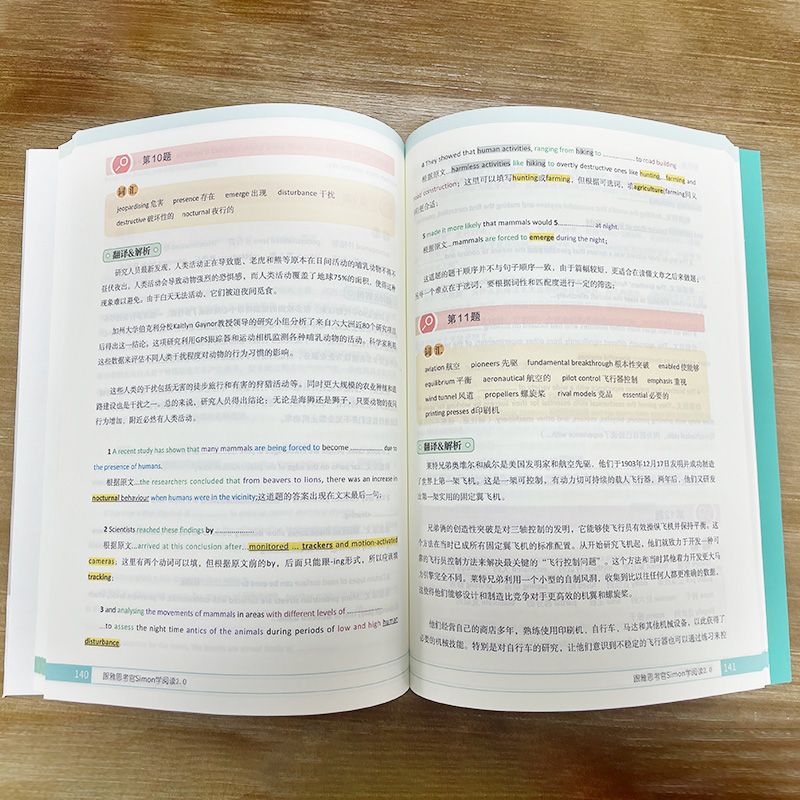 第10题
词汇
jeopardising 危害 presence 存在 emerge 出现 disturbance 干扰
destructive 破坏性的 nocturnal 夜行的
翻译&解析
研究人员最新发现，人类活动正在导致鹿、老虎和熊等原本在日间活动的哺乳动物不得不
昼伏夜出。人类活动会导致动物强烈的恐惧感，而人类活动覆盖了地球75%的面积，使得这种
现象难以避免。由于白天无法活动，它们被迫夜间觅食。
加州大学伯克利分校Kaitlyn Gaynor教授领导的研究小组分析了来自六大洲近80个研究项目
后得出这一结论。这项研究利用GPS跟踪器和运动相机监测各种哺乳动物的活动。科学家利用
这些数据来评估不同人类干扰程度对动物的行为习惯的影响。
这些人类的干扰包括无害的徒步旅行和有害的狩猎活动等。同时更大规模的农业种植和道
路建设也是干扰之一。总的来说，研究人员得出结论：无论是海狸还是狮子，只要动物的夜间
行为增加，附近必然有人类活动。
1 A recent study has shown that many mammals are being forced to become ................ due to
the presence of humans.
根据原文...the researchers concluded that from beavers to lions, there was an increase in
nocturnal behaviour when humans were in the vicinity;这道题的答案出现在文末最后一句；
2 Scientists reached these findings by ................
根据原文...arrived at this conclusion after...monitored ... trackers and motion-activated
cameras；这里有两个动词可以填，但根据原文前的by，后面只能跟-ing形式，所以应该填
tracking；
3 and analysing the movements of mammals in areas with different levels of ................
...to assess the night time antics of the animals during periods of low and high human
disturbance.
140 跟雅思考官Simon学阅读2.0
4 They showed that human activities, ranging from hiking to ................ to road building.
根据原文...harmless activities like hiking to overtly destructive ones like hunting...farming and
road construction；这里可以填写hunting或farming，但根据可选词，填agriculture(farming同义
词)更合适；
5 made it more likely that mammals would 5................ at night.
根据原文...mammals are forced to emerge during the night；
这道题的题干顺序并不与句子顺序一致，由于篇幅较短，更适合在读懂文章之后来做题；
另外一个难点在于选词，要根据词性和匹配度进行一定的筛选；
第11题
词汇
aviation 航空 pioneers 先驱 fundamental breakthrough 根本性突破 enabled 使能够
equilibrium 平衡 aeronautical 航空的 pilot control 飞行器控制 emphasis 重视
wind tunnel 风道 propellers 螺旋桨 rival models 竞品 essential 必要的
printing presses d印刷机
翻译&解析
莱特兄弟奥维尔和威尔是美国发明家和航空先驱，他们于1903年12月17日发明并成功制造
了世界上第一架飞机。这是一架可控制，有动力切可持续的载人飞行器。两年后，他们又研发
出第一架实用的固定翼飞机。
兄弟俩的创造性突破是对三轴控制的发明，它能够使飞行员有效操纵飞机并保持平衡。这
个方法在当时已成所有固定翼飞机的标准配置。从开始研究飞机起，他们就致力于开发一种可
靠的飞行员控制方法来解决最关键的“飞行控制问题”。这个方法和当时其他着力开发更大马
力引擎完全不同。莱特兄弟利用一个小型的自制风洞，收集到比以往任何人都更准确的数据，
这使得他们能够设计和制造比竞争对于更高效的机翼和螺旋桨。
他们经营自己的商店多年，熟练使用印刷机、自行车、马达和其他机械设备，以此获得了
必要的机械技能。特别是对自行车的研究，让他们意识到不稳定的飞行器也可以通过练习来控
跟雅思考官Simon学阅读2.0 141